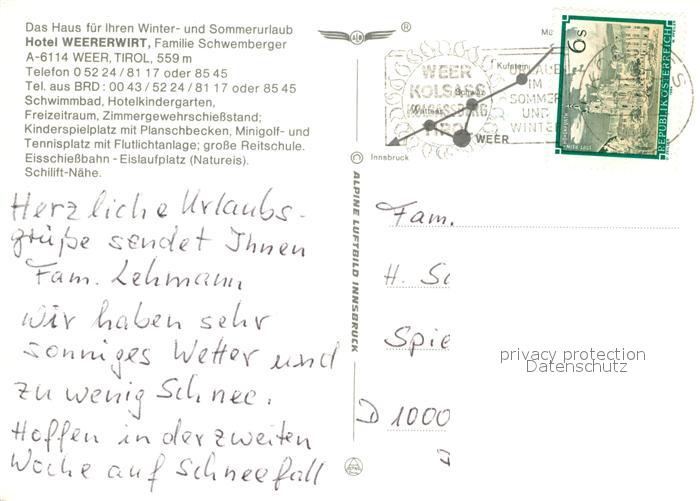 Das Haus für Ihren Winter- und Sommerurlaub
Hotel WEERERWIRT, Familie Schwemberger
A-6114 WEER, TIROL, 559 m
Telefon 0 52 24 / 81 17 oder 85 45
Tel. aus BRD : 00 43 / 52 24 / 81 17 oder 85 45
Schwimmbad, Hotelkindergarten,
Freizeitraum, Zimmergewehrschießstand;
Kinderspielplatz mit Planschbecken, Minigolf- und
Tennisplatz mit Flutlichtanlage; große Reitschule.
Eisschießbahn - Eislaufplatz (Natureis).
Schilift-Nähe.
Herzliche Urlaubs-
grüße sendet Ihnen
Fam. Lehmann
wir haben sehr
sonniges Wetter und
zu wenig Schnee.
Hoffen in der zweiten
Woche auf Schneefall
® 
Kufstein
Schwaz
Wattens
WEER
Innsbruck
WEER
URLAUB
IM
SOMMER
UND
WINTER
6 S
REPUBLIK ÖSTERREICH
© ALPINE LUFTBILD INNSBRUCK
Fam.
H. Sc
Spie
D 1000
privacy protection
Datenschutz